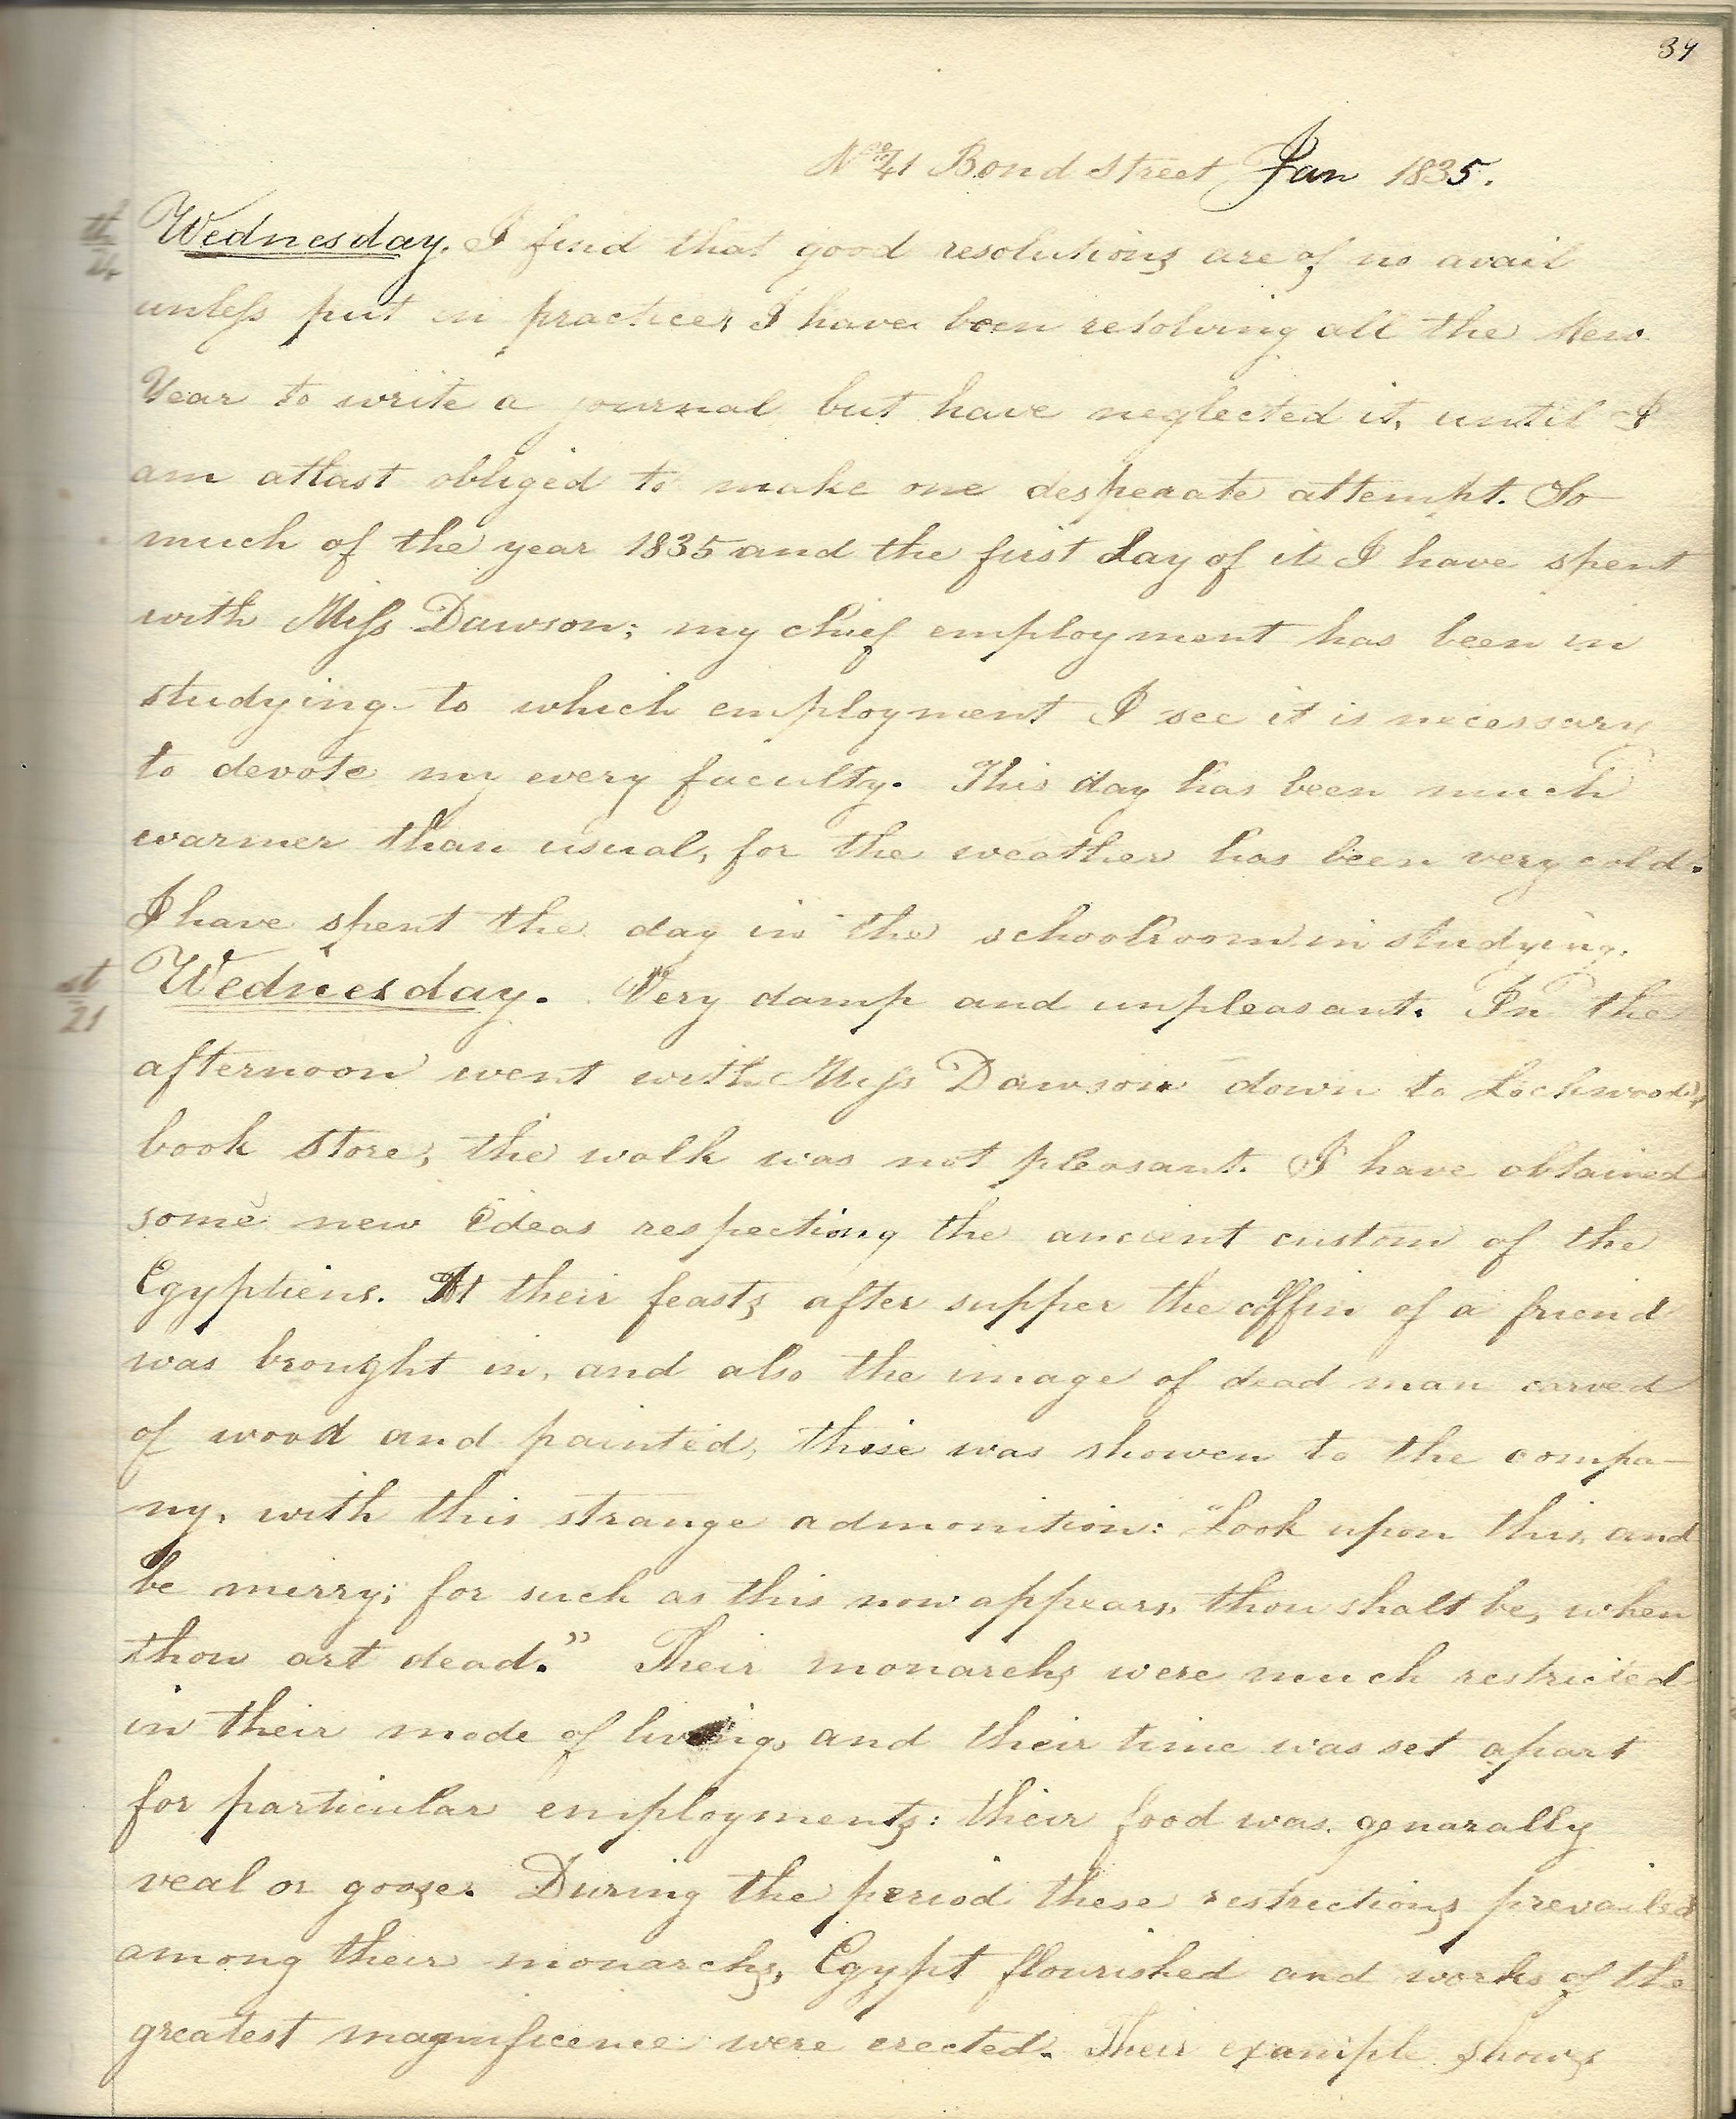 39
No 41 Bond Street Jan 1835.
th
14
Wednesday. I find that good resolutions are of no avail
unless put in practice, I have been resolving all the New
Year to write a journal but have neglected it, until I
am atlast obliged to make one desperate attempt. So
much of the year 1835 and the first day of it I have spent
with Miss Dawson; my chief employment has been in
studying to which employment I see it is necessary
to devote my every faculty. This day has been much
warmer than usual, for the weather has been very cold.
I have spent the day in the schoolroom in studying.
st
21
Wednesday. Very damp and unpleasant. In the
afternoon went with Miss Dawson down to Lockwood's
book store, the walk was not pleasant. I have obtained
some new Ideas respecting the ancient custom of the
Egyptiens. At their feasts after supper the coffin of a friend
was brought in, and also the image of dead man carved
of wood and painted, these was showen to the compa-
ny, with this strange admonition: "Look upon this, and
be merry; for such as this now appears, thou shalt be, when
thou art dead." Their monarchs were much restricted
in their mode of living, and their time was set apart
for particular employments: their food was genarally
veal or goose. During the period these restrictions prevailed
among their monarchs, Egypt flourished and works of the
greatest magnificence were erected. Their example shows